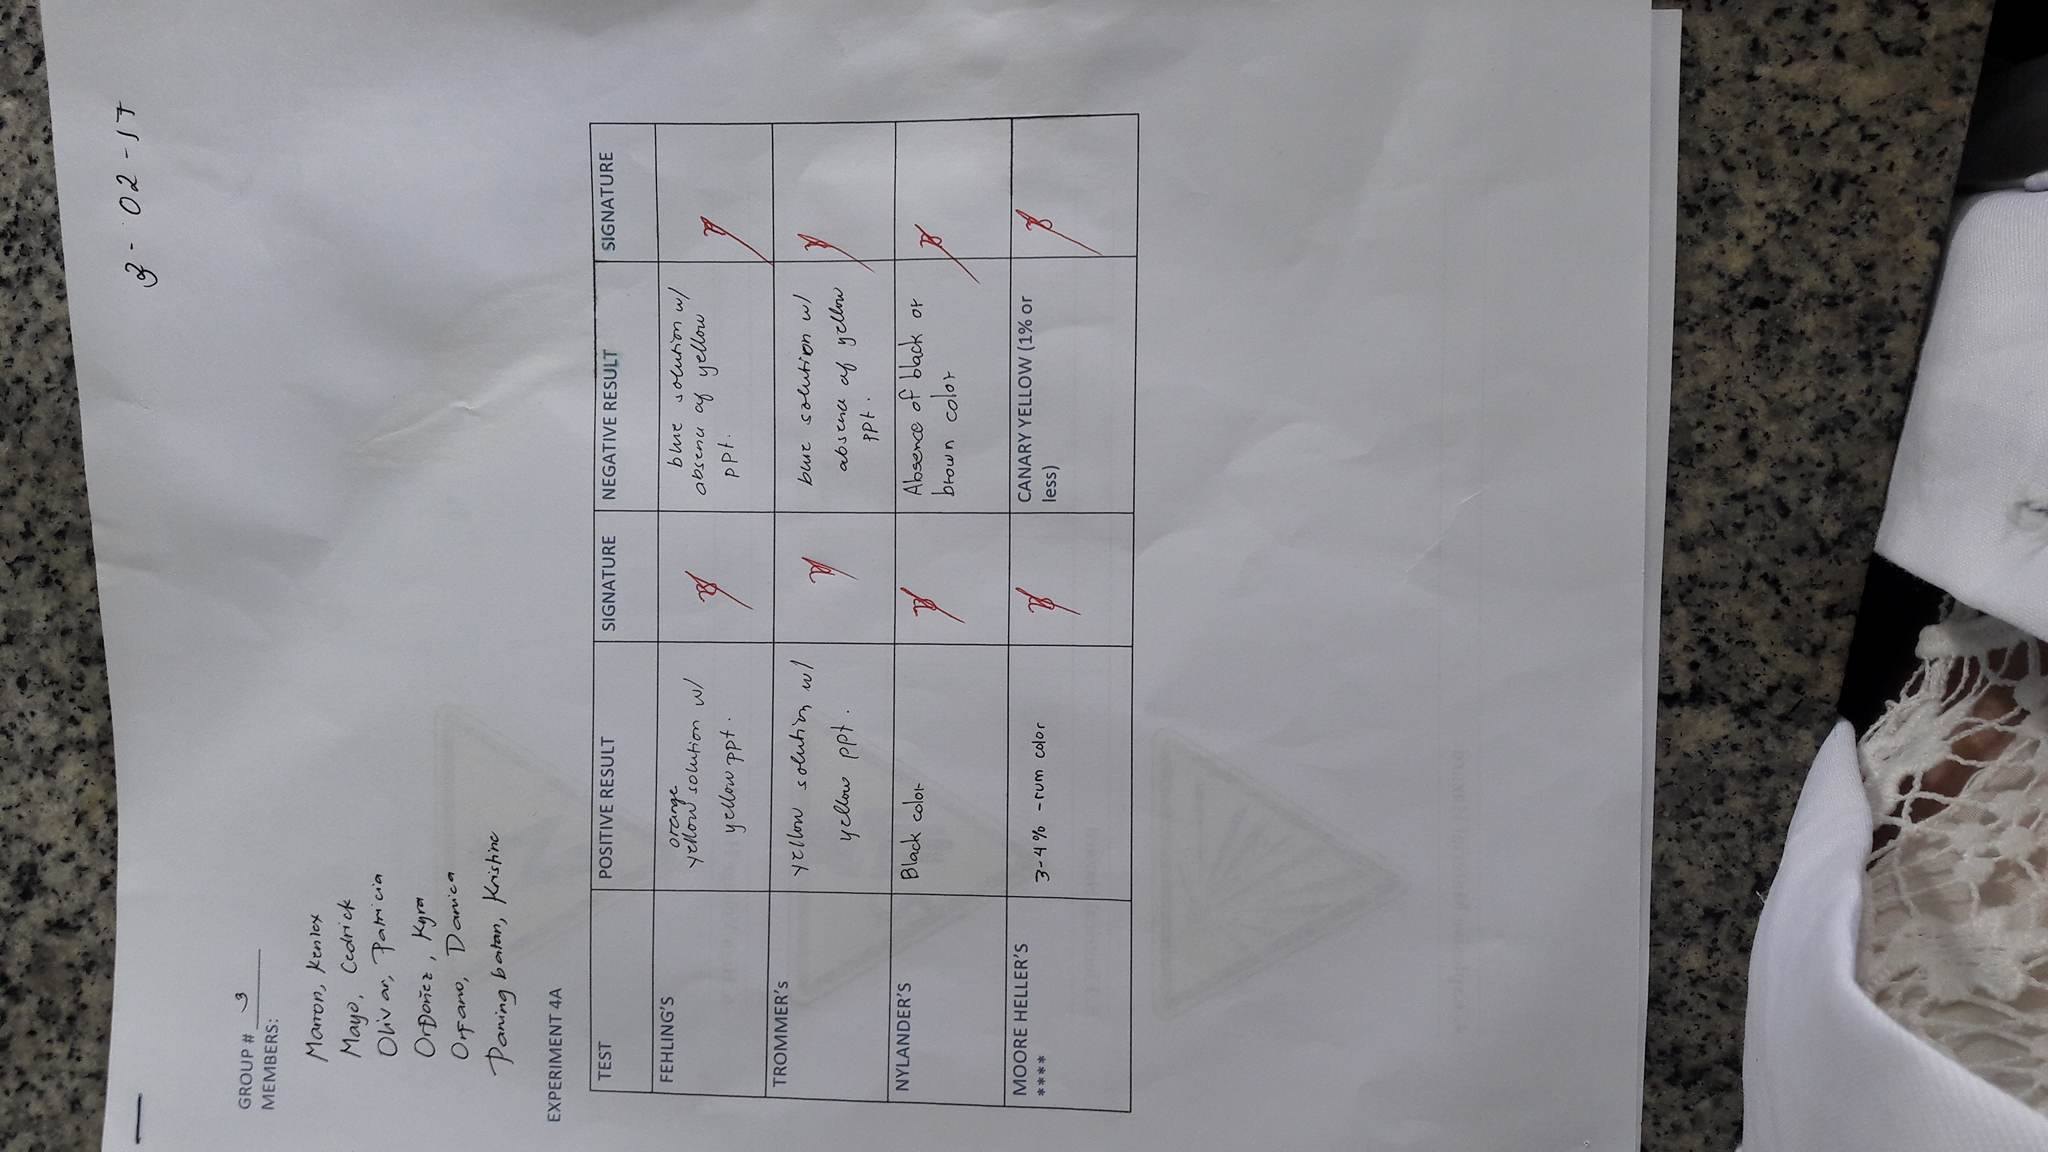 3 - 02 - 17
GROUP # 3
MEMBERS:
Marron, Kenlex
Mayo, Cedrick
Olivar, Patricia
Ordoñez, Kyra
Orfano, Danica
Paningbatan, Kristine
EXPERIMENT 4A
TEST POSITIVE RESULT SIGNATURE NEGATIVE RESULT SIGNATURE
FEHLING'S
orange
yellow solution w/
yellow ppt.
blue solution w/
absence of yellow
ppt.
TROMMER's
yellow solution w/
yellow ppt.
blue solution w/
absence of yellow
ppt.
NYLANDER'S
Black color
Absence of black or
brown color
MOORE HELLER'S
****
3-4% - rum color
CANARY YELLOW (1% or
less)